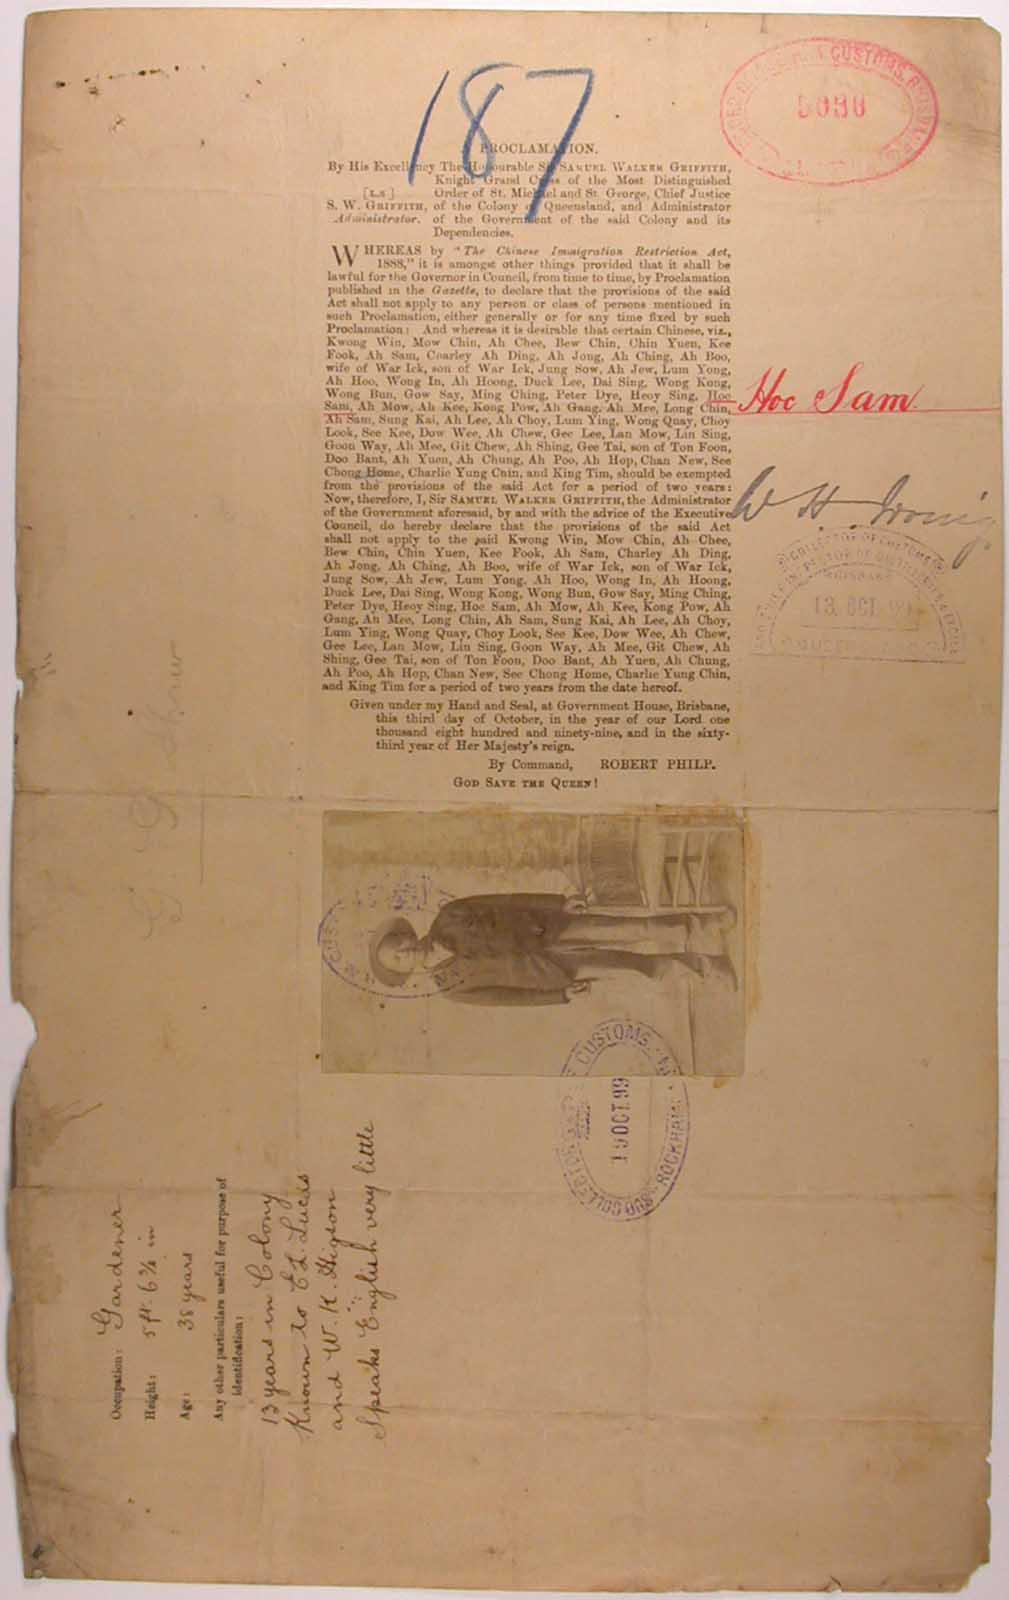 187
5030
PROCLAMATION.
By His Excellency The Honourable Sir SAMUEL WALKER GRIFFITH,
Knight Grand Cross of the Most Distinguished
[L.S.] Order of St. Michael and St. George, Chief Justice
S. W. GRIFFITH, of the Colony of Queensland, and Administrator
Administrator. of the Government of the said Colony and its
Dependencies.
WHEREAS by "The Chinese Immigration Restriction Act,
1888," it is amongst other things provided that it shall be
lawful for the Governor in Council, from time to time, by Proclamation
published in the Gazette, to declare that the provisions of the said
Act shall not apply to any person or class of persons mentioned in
such Proclamation, either generally or for any time fixed by such
Proclamation: And whereas it is desirable that certain Chinese, viz.,
Kwong Win, Mow Chin, Ah Chee, Bew Chin, Chin Yuen, Kee
Fook, Ah Sam, Charley Ah Ding, Ah Jong, Ah Ching, Ah Boo,
wife of War Ick, son of War Ick, Jung Sow, Ah Jew, Lum Yong,
Ah Hoo, Wong In, Ah Hoong, Duck Lee, Dai Sing, Wong Kong,
Wong Bun, Gow Say, Ming Ching, Peter Dye, Heoy Sing, Hoc
Sam, Ah Mow, Ah Kee, Kong Pow, Ah Gang, Ah Mee, Long Chin,
Ah Sam, Sung Kai, Ah Lee, Ah Choy, Lum Ying, Wong Quay, Choy
Look, See Kee, Dow Wee, Ah Chew, Gee Lee, Lan Mow, Lin Sing,
Goon Way, Ah Mee, Git Chew, Ah Shing, Gee Tai, son of Ton Foon,
Doo Bant, Ah Yuen, Ah Chung, Ah Poo, Ah Hop, Chan New, See
Chong Home, Charlie Yung Chin, and King Tim, should be exempted
from the provisions of the said Act for a period of two years:
Now, therefore, I, Sir SAMUEL WALKER GRIFFITH, the Administrator
of the Government aforesaid, by and with the advice of the Executive
Council, do hereby declare that the provisions of the said Act
shall not apply to the said Kwong Win, Mow Chin, Ah Chee,
Bew Chin, Chin Yuen, Kee Fook, Ah Sam, Charley Ah Ding,
Ah Jong, Ah Ching, Ah Boo, wife of War Ick, son of War Ick,
Jung Sow, Ah Jew, Lum Yong, Ah Hoo, Wong In, Ah Hoong,
Duck Lee, Dai Sing, Wong Kong, Wong Bun, Gow Say, Ming Ching,
Peter Dye, Heoy Sing, Hoc Sam, Ah Mow, Ah Kee, Kong Pow, Ah
Gang, Ah Mee, Long Chin, Ah Sam, Sung Kai, Ah Lee, Ah Choy,
Lum Ying, Wong Quay, Choy Look, See Kee, Dow Wee, Ah Chew,
Gee Lee, Lan Mow, Lin Sing, Goon Way, Ah Mee, Git Chew, Ah
Shing, Gee Tai, son of Ton Foon, Doo Bant, Ah Yuen, Ah Chung,
Ah Poo, Ah Hop, Chan New, See Chong Home, Charlie Yung Chin,
and King Tim for a period of two years from the date hereof.
Given under my Hand and Seal, at Government House, Brisbane,
this third day of October, in the year of our Lord one
thousand eight hundred and ninety-nine, and in the sixty-
third year of Her Majesty's reign.
By Command, ROBERT PHILP.
GOD SAVE THE QUEEN!
Hoc Sam
W. H. Irving
BRISBANE
13. OCT. 99
COLLECTOR OF CUSTOMS
19 OCT. 99
Occupation: Gardener
Height: 5 ft. 6¾ in
Age: 38 years
Any other particulars useful for purpose of
identification:
13 years in Colony
Known to E L. Lucas
and W. K. Higson
Speaks English very little